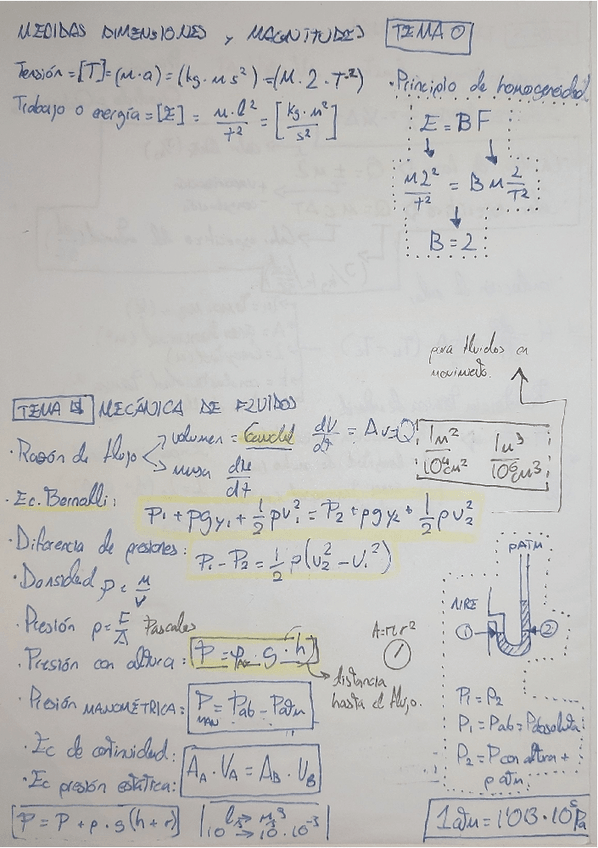 MEDIDAS DIMENSIONES y MAGNITUDES TEMA 0
Tensión = [T] = (m·a) = (kg·m s²) = (M·L·T⁻²)
Trabajo o energía = [E] = M·l²/t² = [kg·m²/s²]
·Principio de homogeneidad
E = BF
ML²/T² = B M L/T²
B = L
para fluidos en
movimiento.
TEMA 1 MECÁNICA DE FLUIDOS
·Razón de flujo
volumen = Caudal dV/dt = Av=Q
masa dm/dt
1m² / 10⁴cm² 1m³ / 10⁶cm³
·Ec. Bernulli:
P₁ + ρgy₁ + 1/2 ρv₁² = P₂ + ρgy₂ + 1/2 ρv₂²
·Diferencia de presiones:
P₁ - P₂ = 1/2 ρ(v₂² - v₁²)
·Densidad ρ = M/V
·Presión p = F/A Pascales
·Presión con altura: P = ρ · g · h
distancia
hasta el flujo.
A=πr²
·Presión MANOMÉTRICA: P MAN = Pab - Patm
·Ec de continuidad:
A_A · V_A = A_B · V_B
·Ec presión estática:
P = P + ρ · g (h + r)
l → m³
10³ → 10 · 10⁻³
PATM
AIRE
1 2
P₁ = P₂
P₁ = Pab = Pabsoluta
P₂ = P con altura +
p atm
1 atm = 1'013 · 10⁵ Pa